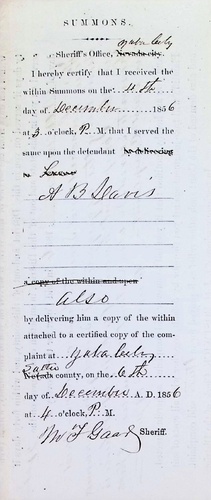 SUMMONS.
Yuba City
Sheriff's Office, Nevada city.
I hereby certify that I received the
within Summons on the 4th
day of December 1856
at 3 o'clock, P. M. that I served the
same upon the defendant by delivering
to
A B Davis
a copy of the within and upon
also
by delivering him a copy of the within
attached to a certified copy of the com-
plaint at Yuba City
Sutter
Nevada county, on the 6th
day of December A. D. 1856
at 4 o'clock, P. M.
Sheriff.